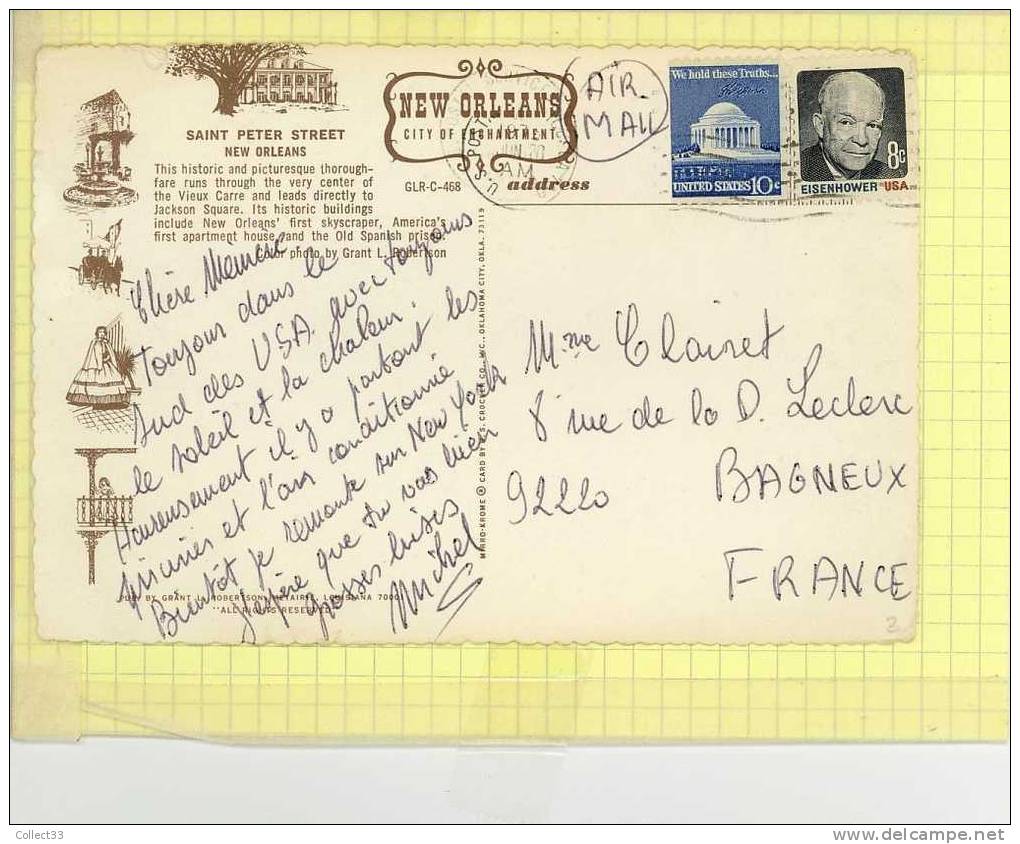 SAINT PETER STREET
NEW ORLEANS
This historic and picturesque thorough-
fare runs through the very center of
the Vieux Carre and leads directly to
Jackson Square. Its historic buildings
include New Orleans' first skyscraper, America's
first apartment house and the Old Spanish prison.
Color photo by Grant L. Robertson
NEW ORLEANS
CITY OF ENCHANTMENT
GLR-C-468
address
AM
AIR
MAIL
We hold these Truths...
UNITED STATES 10c
8c
EISENHOWER USA
Chère Mémère,
Toujours dans le
Sud des USA avec toujours
le soleil et la chaleur.
Heureusement il y a partout les
piscines et l'air conditionné
Bientôt je remonte sur New York
J'espère que tu vas bien
grosses bises
Michel
MIRRO-KROME ® CARD BY H.S. CROCKER CO., INC., OKLAHOMA CITY, OKLA. 73113
PUB. BY GRANT L. ROBERTSON, METAIRIE, LOUISIANA 70001
"ALL RIGHTS RESERVED"
Mme Clairet
8 rue de la D. Leclerc
92220 BAGNEUX
FRANCE
2
Collect33
http://www.delcampe.net